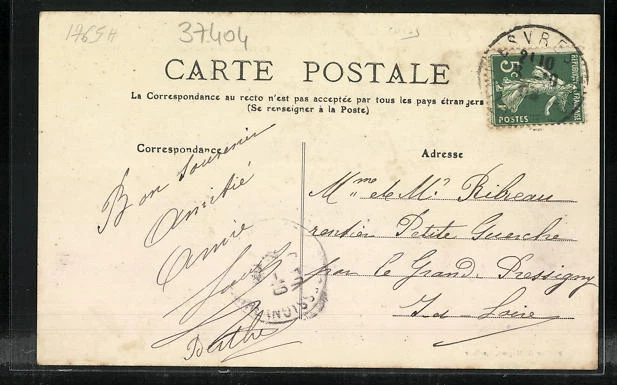 1765H
37404
CARTE POSTALE
La Correspondance au recto n'est pas acceptée par tous les pays étrangers
(Se renseigner à la Poste)
Correspondance
Adresse
Bon souvenir
Amitié
Amie
Berthe
Mme de Mr Ribreau
rentier Petite Guerche
par le Grand Pressigny
I-d-Loire
5c
POSTES
ESVRES